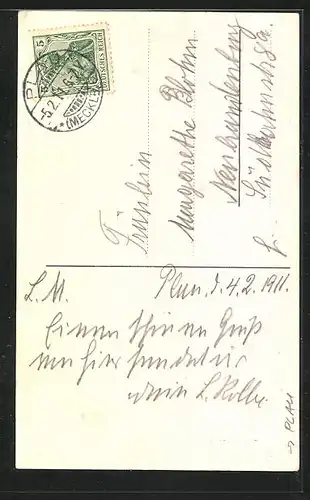 5 5
DEUTSCHES REICH
-5.2.11.6-7
* (MECKLB)
Fräulein
Margarethe Blohm
Neubrandenburg
L. M. Plau, d. 4.2.1911.
Einen schönen Gruß
von hier sendet dir
dein L. Kolbe.
→ PLAU